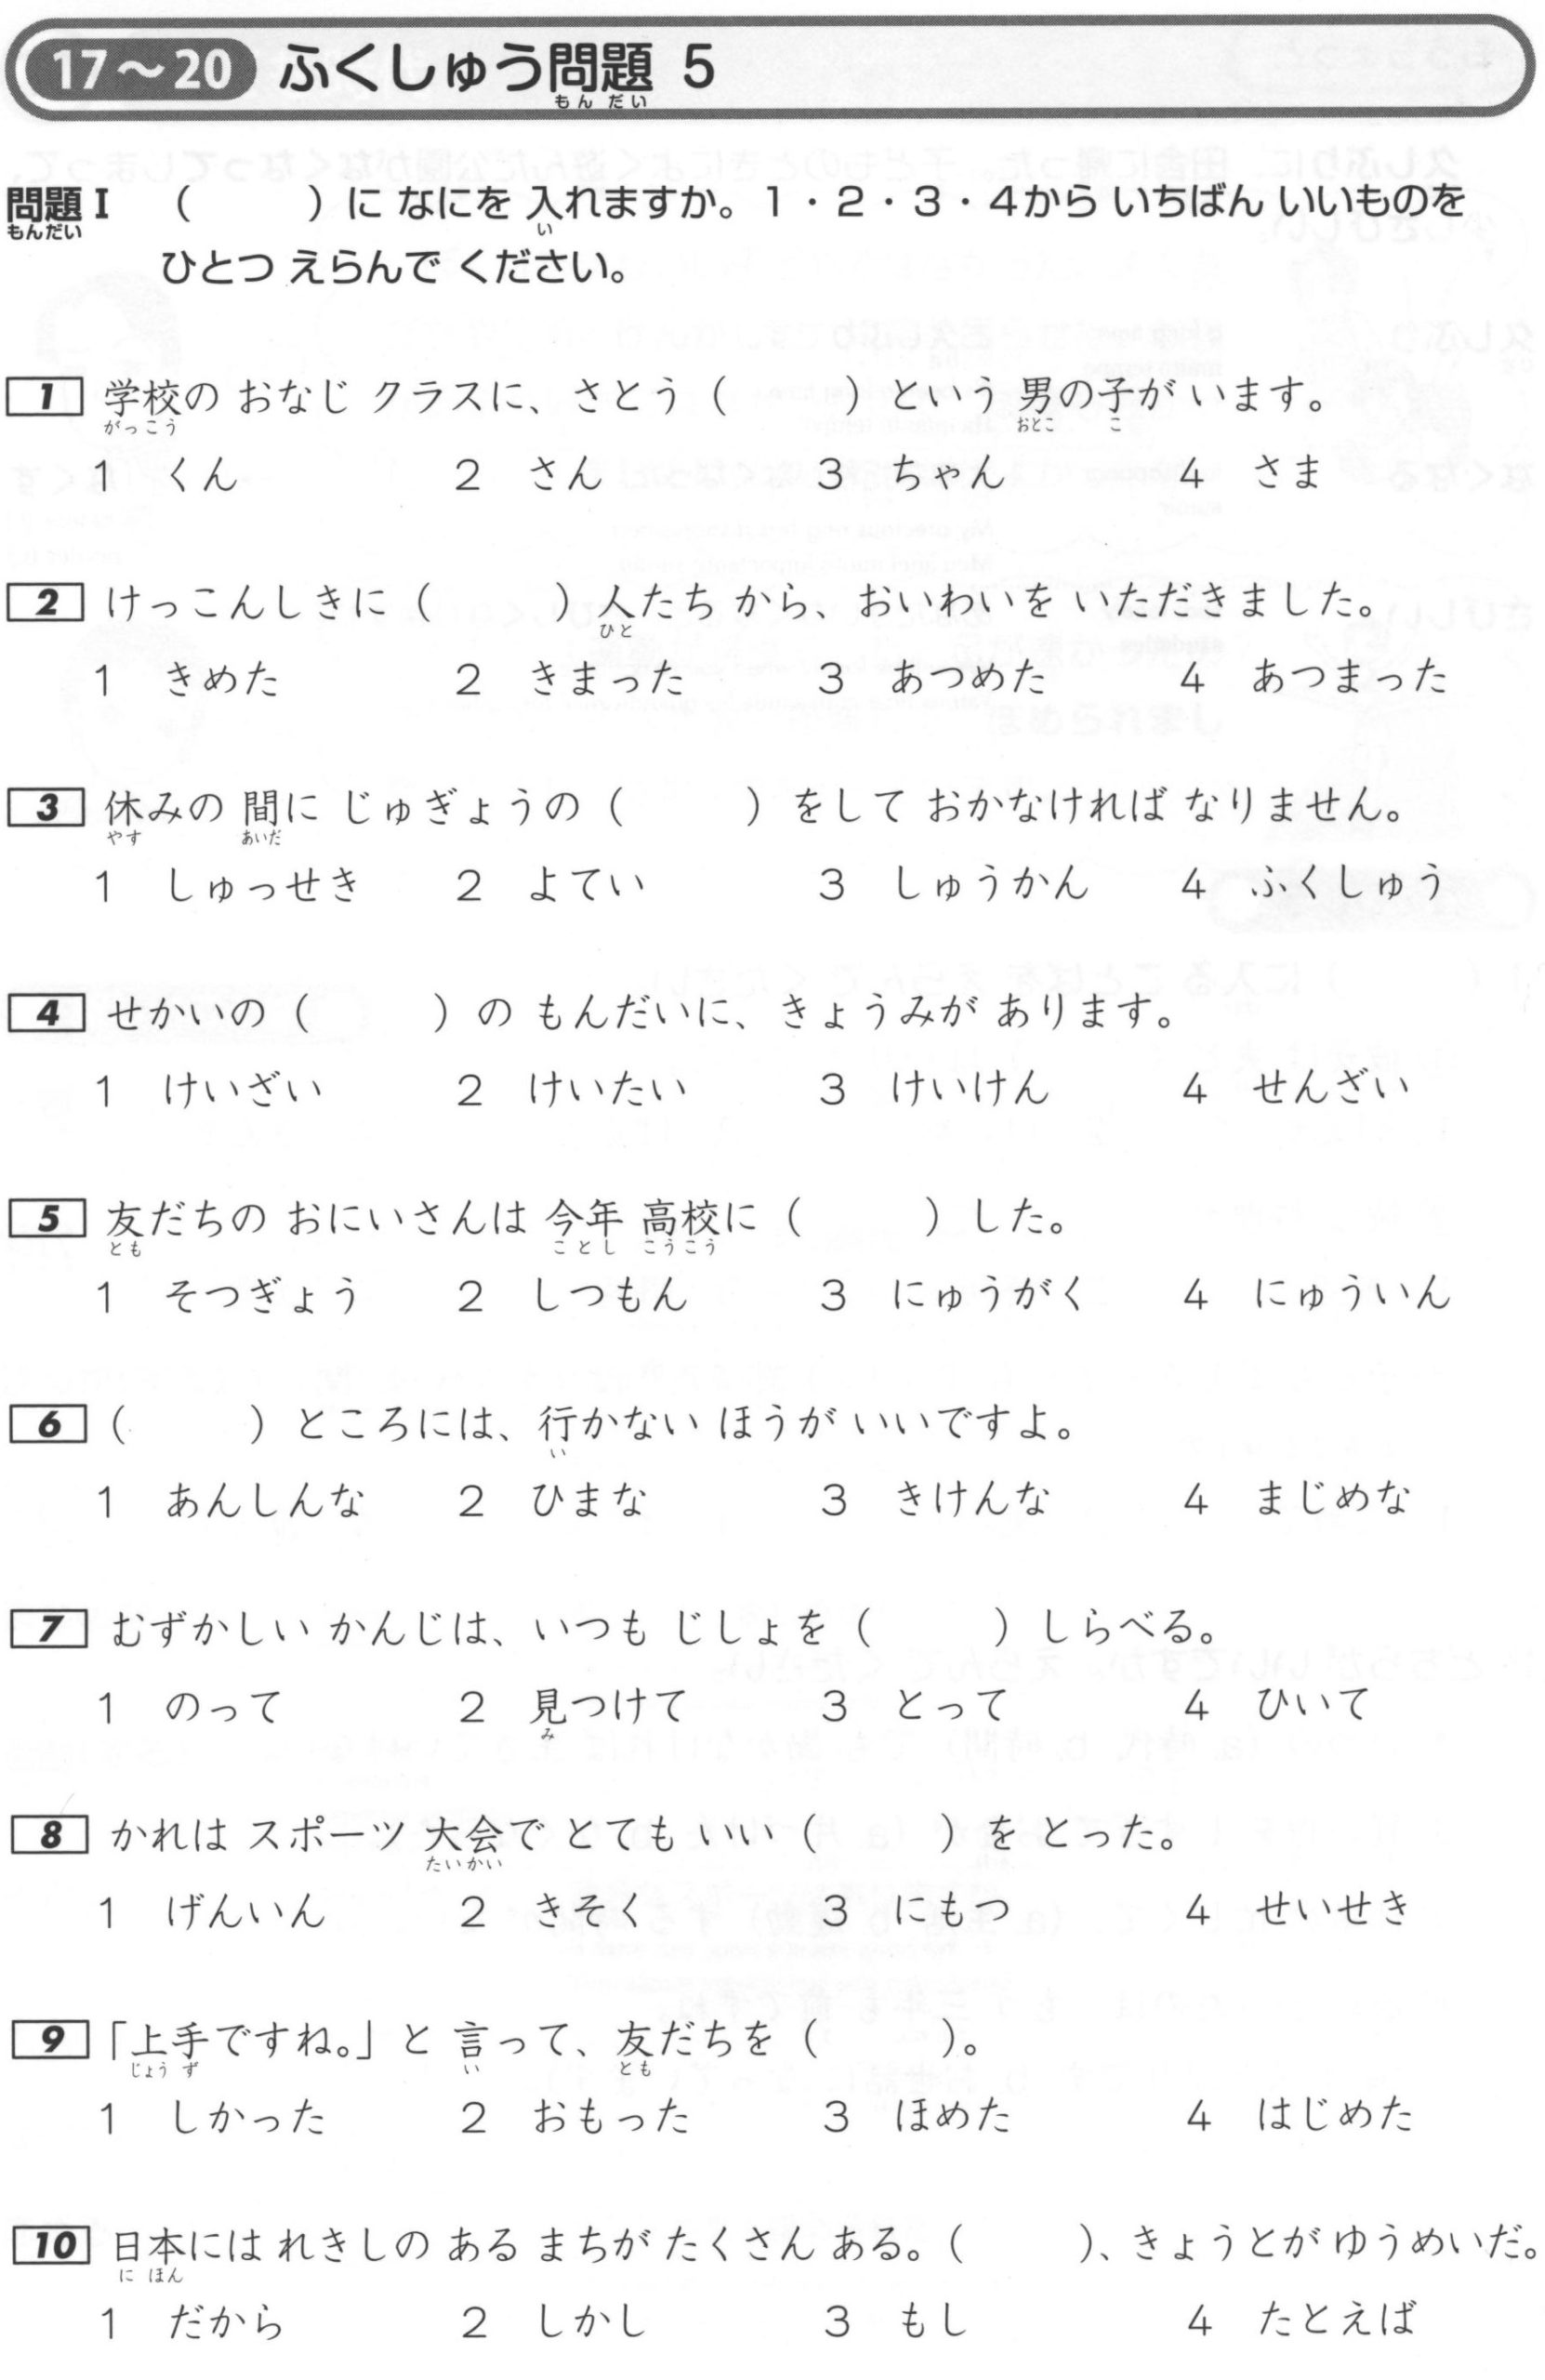 17〜20 ふくしゅう問題 5
もんだい
問題Ⅰ （　　　）に なにを 入れますか。1・2・3・4から いちばん いいものを
もんだい い
ひとつ えらんで ください。
1 学校の おなじ クラスに、さとう（　　　）という 男の子が います。
がっこう おとこ こ
1 くん 2 さん 3 ちゃん 4 さま
2 けっこんしきに（　　　）人たち から、おいわいを いただきました。
ひと
1 きめた 2 きまった 3 あつめた 4 あつまった
3 休みの 間に じゅぎょうの（　　　）をして おかなければ なりません。
やす あいだ
1 しゅっせき 2 よてい 3 しゅうかん 4 ふくしゅう
4 せかいの（　　　）の もんだいに、きょうみが あります。
1 けいざい 2 けいたい 3 けいけん 4 せんざい
5 友だちの おにいさんは 今年 高校に（　　　）した。
とも ことし こうこう
1 そつぎょう 2 しつもん 3 にゅうがく 4 にゅういん
6 （　　　）ところには、行かない ほうが いいですよ。
い
1 あんしんな 2 ひまな 3 きけんな 4 まじめな
7 むずかしい かんじは、いつも じしょを（　　　）しらべる。
1 のって 2 見つけて 3 とって 4 ひいて
み
8 かれは スポーツ 大会で とても いい（　　　）を とった。
たいかい
1 げんいん 2 きそく 3 にもつ 4 せいせき
9 「上手ですね。」と 言って、友だちを（　　　）。
じょう ず い とも
1 しかった 2 おもった 3 ほめた 4 はじめた
10 日本には れきしの ある まちが たくさん ある。（　　　）、きょうとが ゆうめいだ。
に ほん
1 だから 2 しかし 3 もし 4 たとえば